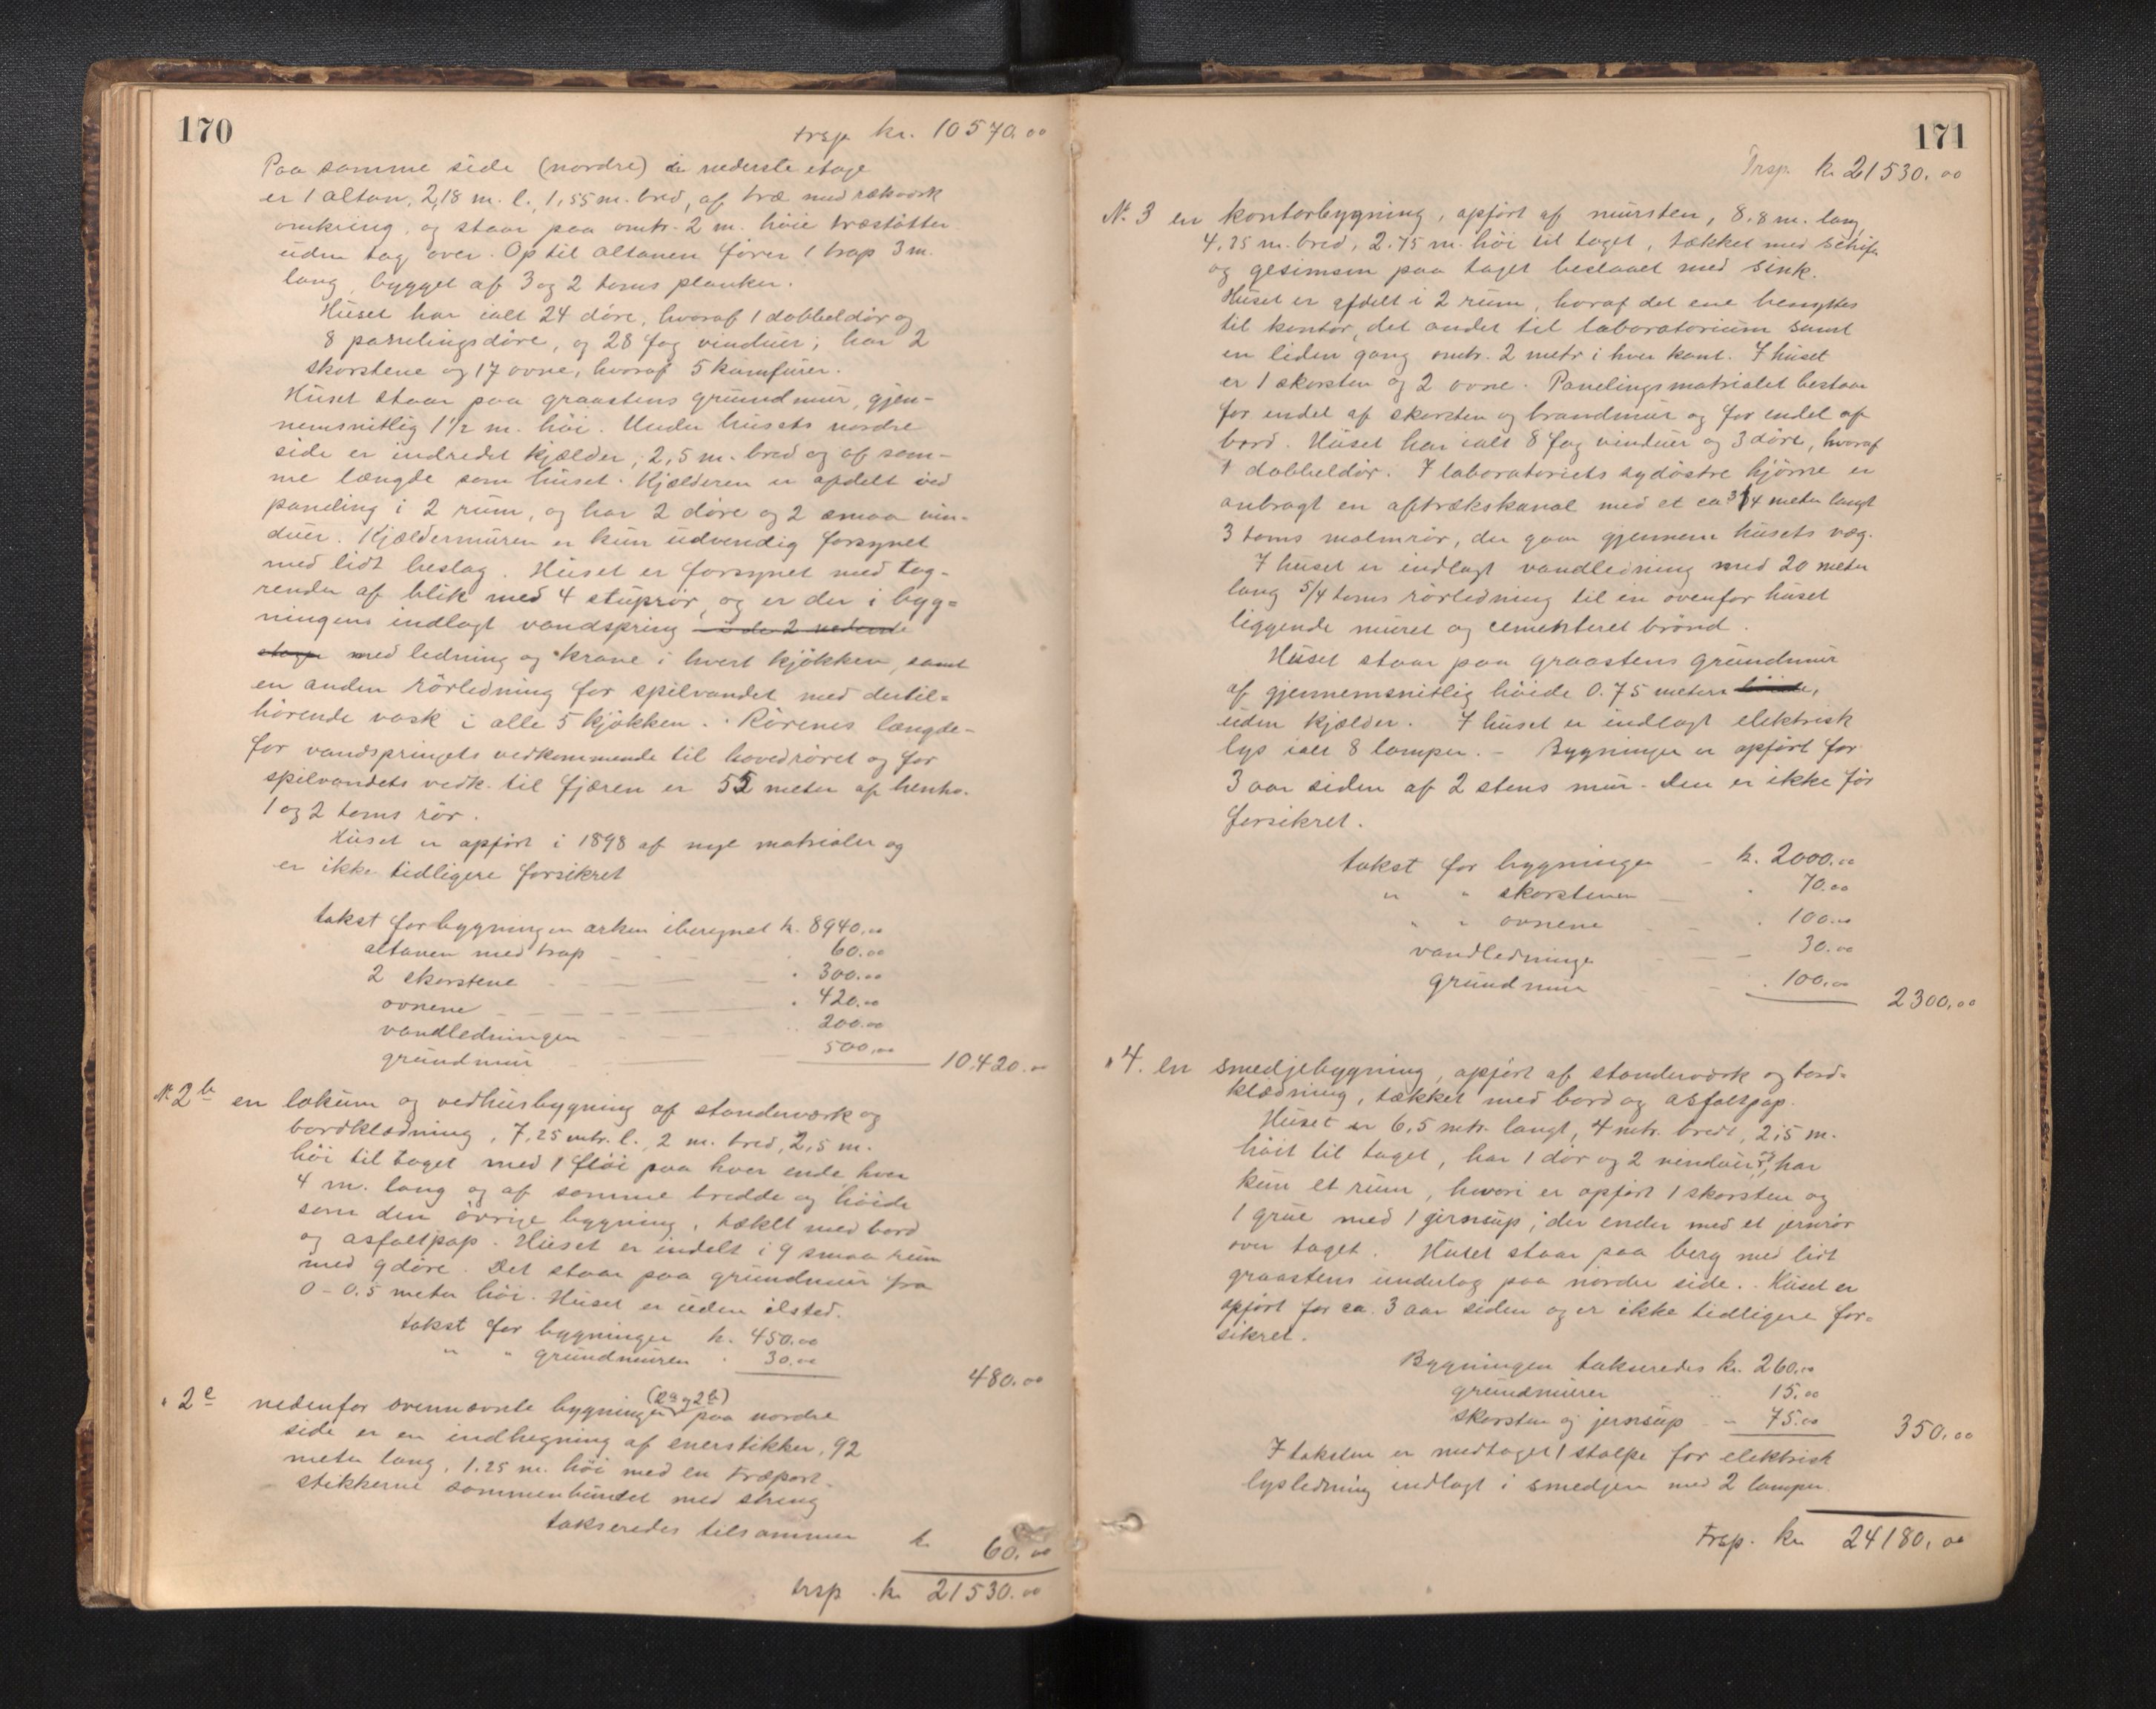 170
trsp kr. 10570.00
Paa samme side (nordre) i nederste etage
er 1 altan, 2,18 m. l., 1,55 m. bred, af træ med rækverk
omkring, og staar paa omtr. 2 m. høie træstøtter
uden tag over. Op til altanen fører 1 trap 3 m.
lang, bygget af 3 og 2 toms planker.
Huset har ialt 24 døre, hvoraf 1 dobbeldør og
8 panelingsdøre, og 28 fag vinduer; har 2
skorstene og 17 ovne, hvoraf 5 komfurer.
Huset staar paa graastens grundmur, gjen-
nemsnitlig 1 1/2 m. høi. Under husets nordre
side er indredet kjælder, 2,5 m. bred og af sam-
me længde som huset. Kjælderen er afdelt ved
paneling i 2 rum, og har 2 døre og 2 smaa vin-
duer. Kjældermuren er kun udvendig forsynet
med lidt beslag. Huset er forsynet med tag-
render af blik med 4 stuprør, og er der i byg-
ningens indlagt vandspring i de 2 nederste
etage med ledning og krane i hvert kjøkken, samt
en anden rørledning for spilvandet med dertil-
hørende vask i alle 5 kjøkken. Rørenes længde-
for vandspringets vedkommende til hovedrøret og for
spilvandets vedk. til fjæren er 55 meter af henhv.
1 og 2 toms rør.
Huset er opført i 1898 af nye matrialer og
er ikke tidligere forsikret
takst for bygningen arken iberegnet kr. 8940.00
altanen med trap 60.00
2 skorstene 300.00
ovnene 420.00
vandledningen 200.00
grundmur 500.00 10,420.00
N. 2b en lokum og vedhusbygning af standerværk og
bordklædning, 7,25 mtr. l., 2 m. bred, 2,5 m.
høi til taget med 1 fløi paa hver ende hver
4 m. lang og af samme bredde og høide
som den øvrige bygning, tækket med bord
og asfaltpap. Huset er indelt i 9 smaa rum
med 9 døre. Det staar paa grundmur fra
0 - 0.5 meter høi. Huset er uden ilsted.
takst for bygningen kr. 450.00
" " grundmuren 30.00
480.00
" 2c nedenfor ovennævnte bygninger (2a og 2b) paa nordre
side er en indhegning af enerstikker, 92
meter lang, 1.25 m. høi med en træport.
stikkerne sammenbundet med streng
takseredes tilsammen kr 60.00
trsp. kr 21530.00
171
Trsp. kr 21530.00
N. 3 en kontorbygning, opført af mursten, 8,8 m. lang,
4,25 m. bred, 2.75 m. høi til taget, tækket med skifer
og gesimsen paa taget beslaaet med sink.
Huset er afdelt i 2 rum, hvoraf det ene benyttes
til kontor, det andet til laboratorium samt
en liden gang omtr. 2 metr i hver kant. I huset
er 1 skorsten og 2 ovne. Panelingsmatrialet bestaar
for endel af skorsten og brandmur og for endel af
bord. Huset har ialt 8 fag vinduer og 3 døre, hvoraf
1 dobbeldør. I laboratoriets sydøstre hjørne er
anbragt en aftrækskanal med et ca 3/4 meter langt
3 toms malmrør, der gaar gjennem husets væg.
I huset er indlagt vandledning med 20 meter
lang 5/4 toms rørledning til en ovenfor huset
liggende muret og cementeret brønd.
Huset staar paa graastens grundmur
af gjennemsnitlig høide 0.75 meters høide,
uden kjælder. I huset er indlagt elektrisk
lys ialt 8 lamper. - Bygningen er opført for
3 aar siden af 2 stens mur. den er ikke før
forsikret.
takst for bygningen - kr. 2000.00
" " skorstenen 70.00
" " ovnene 100.00
vandledninge 30.00
grundmur 100.00 2300.00
" 4. en smedjebygning, opført af standerværk og bord-
klædning, tækket med bord og asfaltpap.
Huset er 6,5 mtr. langt, 4 mtr. bredt, 2,5 m.
høit til taget, har 1 dør og 2 vinduer, har
kun et rum, hvori er opført 1 skorsten og
1 grue med 1 jernsup, der ender med et jernrør
over taget. Huset staar paa berg med lidt
graastens underlag paa nordre side. Huset er
opført for ca. 3 aar siden og er ikke tidligere for-
sikret.
Bygningen takseredes kr. 260.00
grundmuren 15.00
skorsten og jernsup 75.00 350.00
I taksten er medtaget 1 stolpe for elektrisk
lysledning indlagt i smedjen med 2 lamper.
Trsp. kr 24180.00